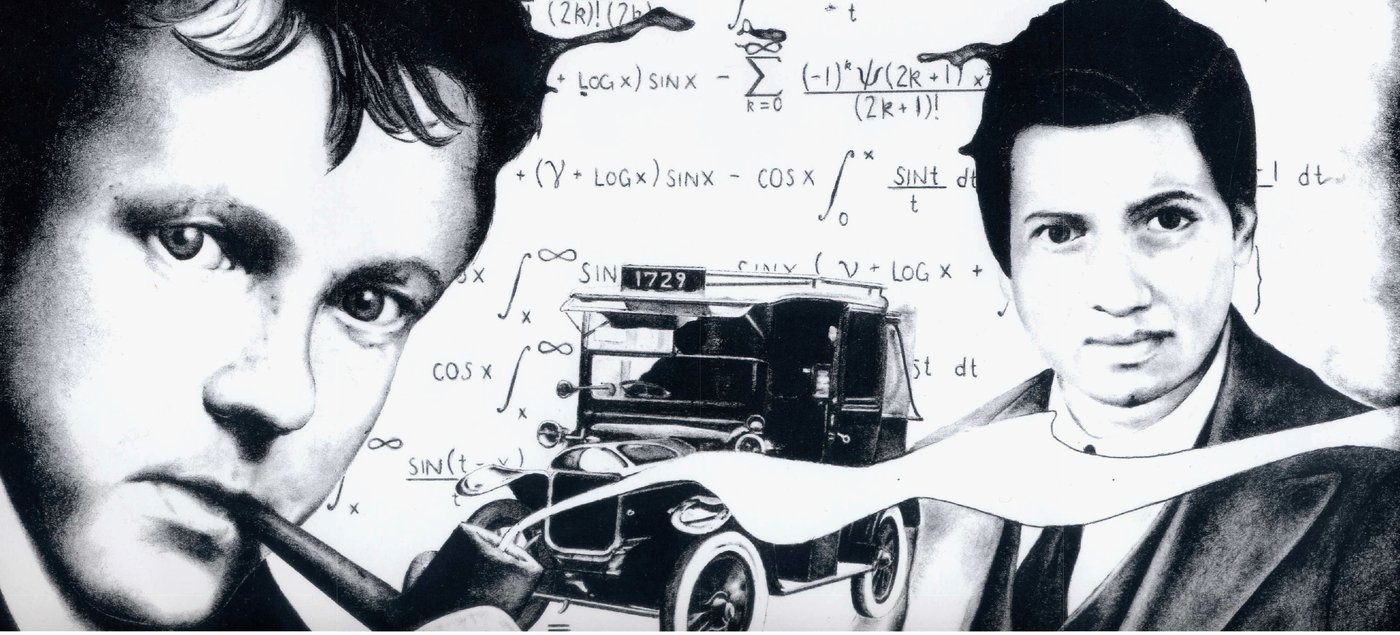 (2k)! (2k)
t
+ LOG x) SIN x − ∞ Σ k=0 (-1)^k ψ(2k+1) x / (2k+1)!
+ (γ + LOG x) SIN x − COS x ∫ x 0 SIN t / t dt
-1 dt
x ∫ ∞ x SIN
1729
SIN x ( γ + LOG x +
COS x ∫ ∞ x
t dt
∞ ∫ x SIN(t - x) / t